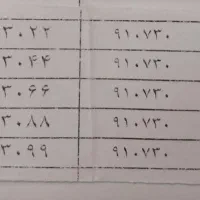 ۳۰۲۲ ۹۱۰۷۳۰
۳۰۴۴ ۹۱۰۷۳۰
۳۰۶۶ ۹۱۰۷۳۰
۳۰۸۸ ۹۱۰۷۳۰
۳۰۹۹ ۹۱۰۷۳۰